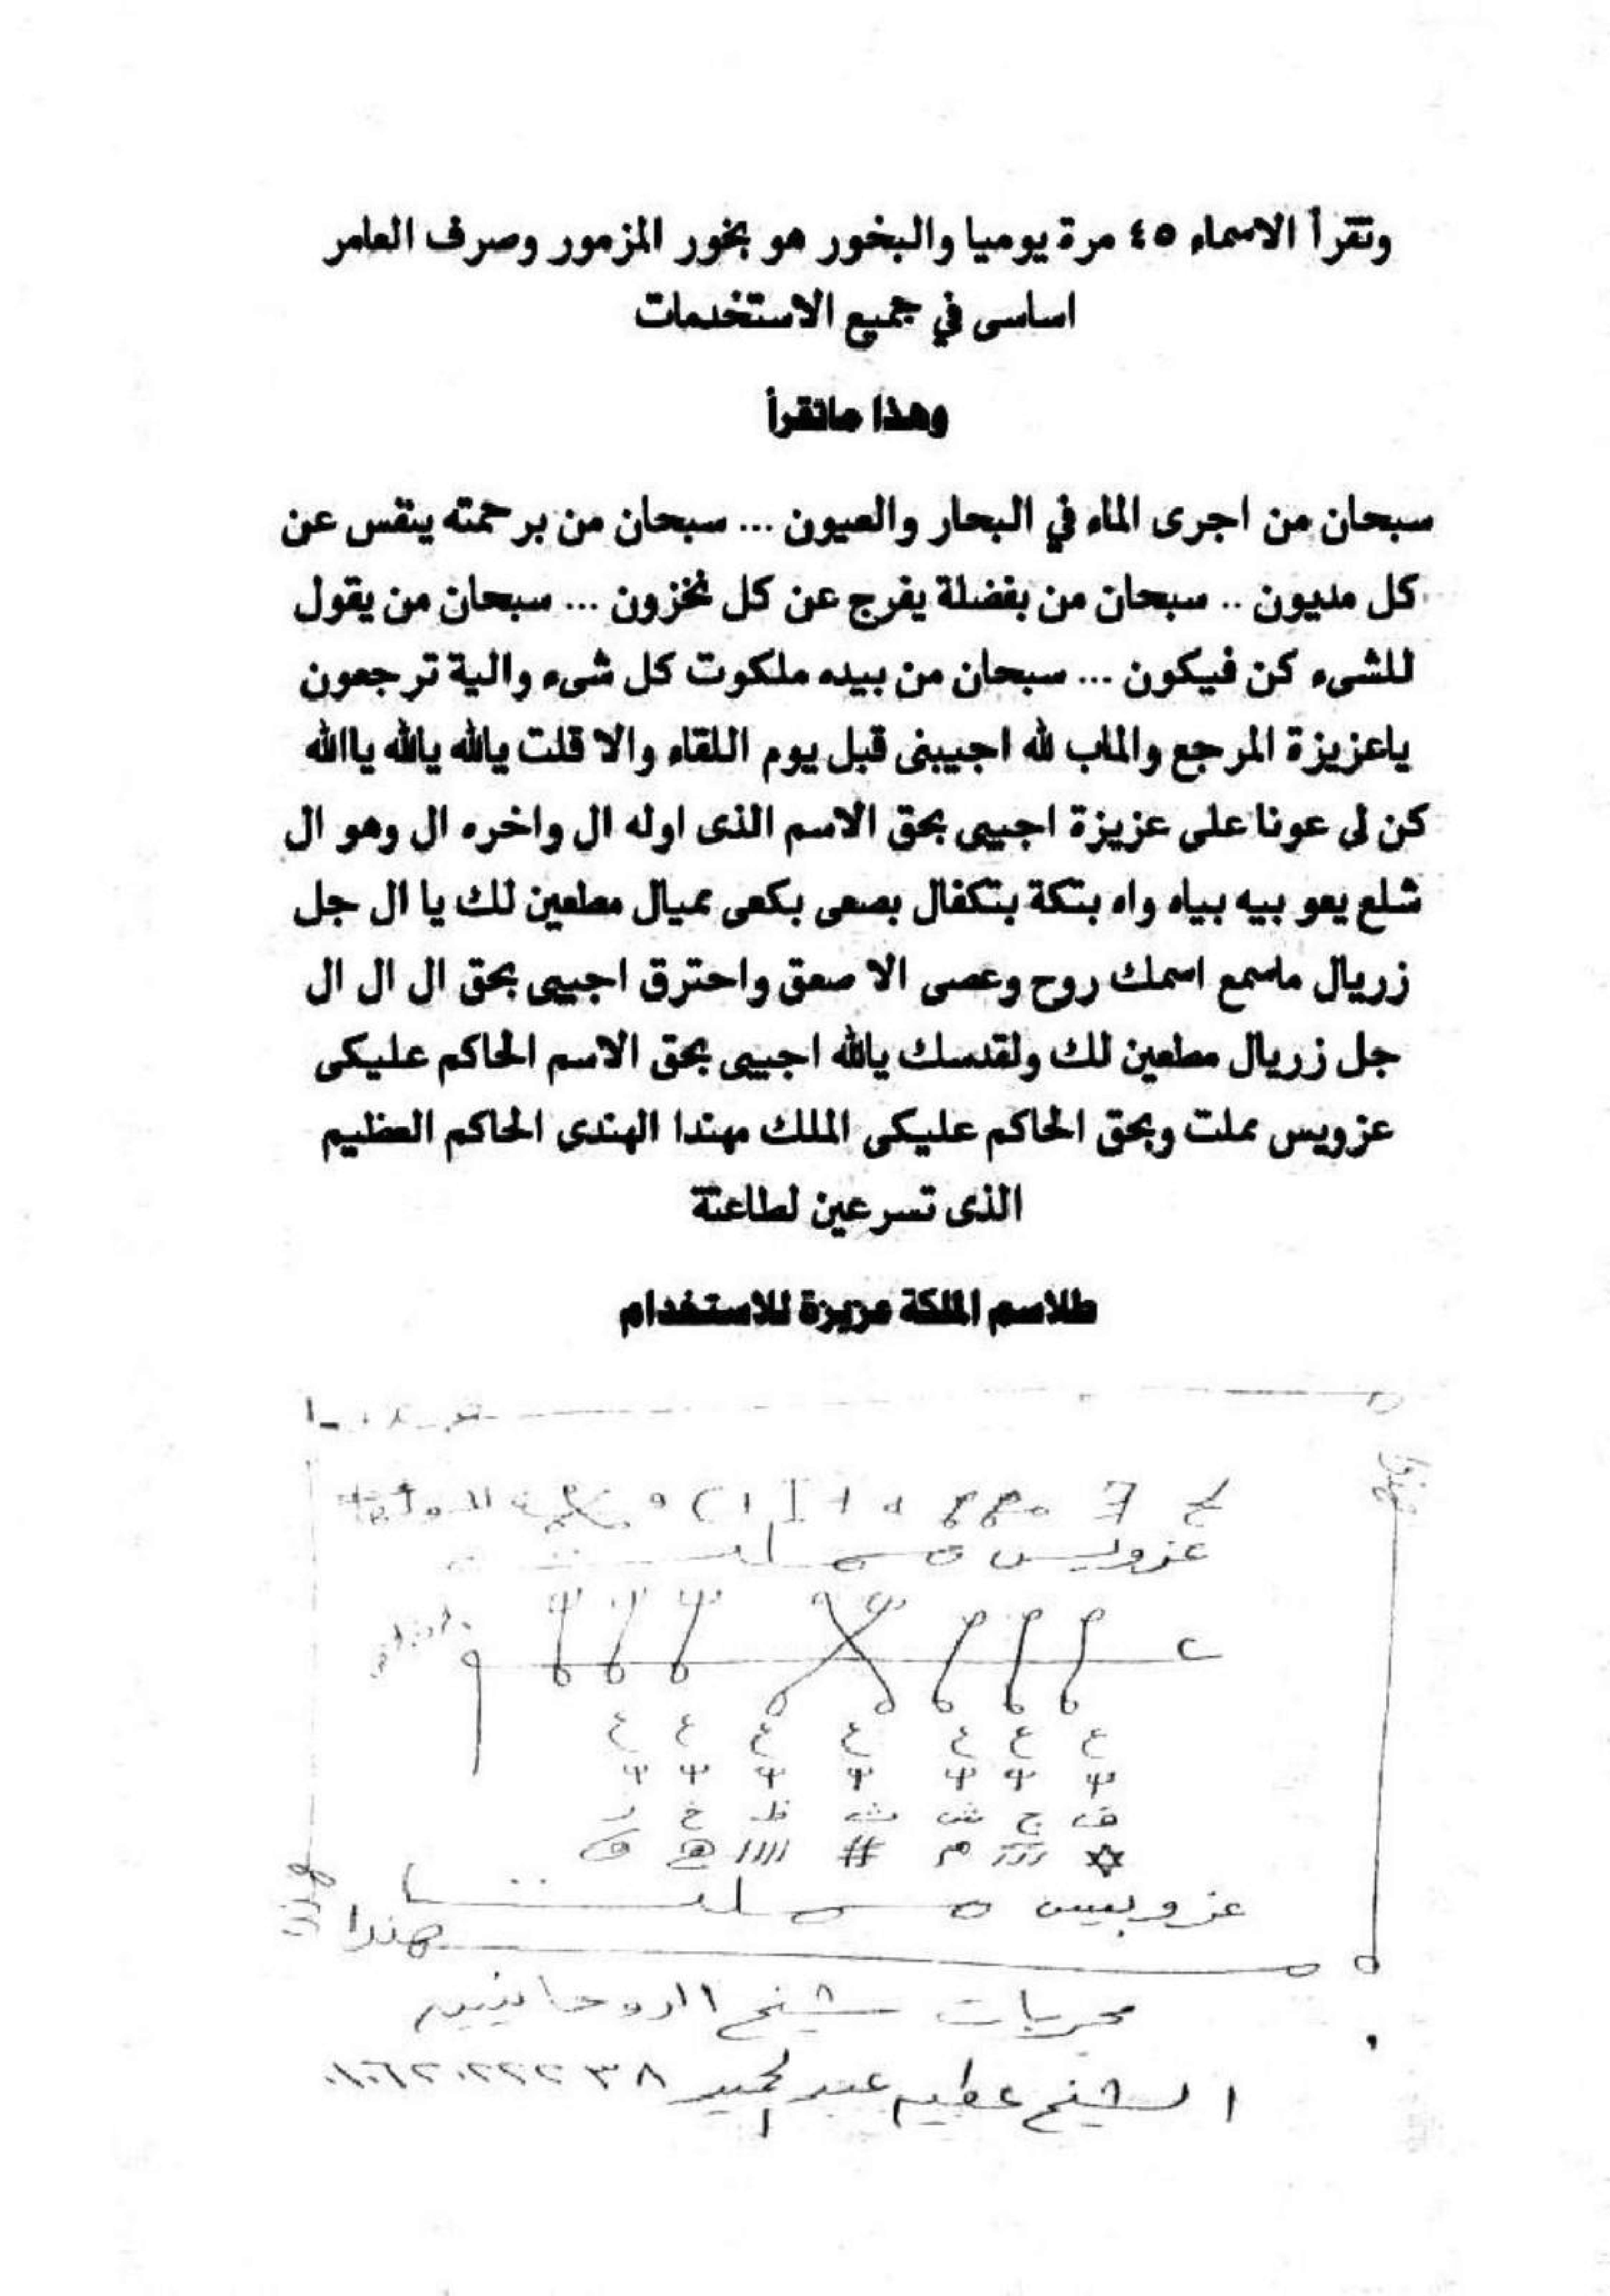 وتقرأ الاسماء ٤٥ مرة يوميا والبخور هو بخور المزمور وصرف العامر
اساسى في جميع الاستخدمات
وهذا ماتقرأ
سبحان من اجرى الماء في البحار والعيون ... سبحان من برحمته ينفس عن
كل مديون .. سبحان من بفضلة يفرج عن كل مخزون ... سبحان من يقول
للشىء كن فيكون ... سبحان من بيده ملكوت كل شىء والية ترجعون
ياعزيزة المرجع والماب لله اجيبنى قبل يوم اللقاء والا قلت يالله يالله ياالله
كن لى عونا على عزيزة اجيبى بحق الاسم الذى اوله ال واخره ال وهو ال
شلع يعو بيه بياه واه بتكة بتكفال بصعى بكعى عميال مطعين لك يا ال جل
زريال ماسمع اسمك روح وعصى الا صعق واحترق اجيبى بحق ال ال ال
جل زريال مطعين لك ولقدسك يالله اجيبى بحق الاسم الحاكم عليكى
عزويس عملت وبحق الحاكم عليكى الملك مهندا الهندى الحاكم العظيم
الذى تسرعين لطاعتة
طلاسم الملكة عزيزة للاستخدام
عزويس
ع ع ع ع ع ع ع
ف ج ش ث ظ خ ز
# م ✡
عزويس
هندا
مجربات شيخ الروحانيين
الشيخ عطيه عبد الحميد